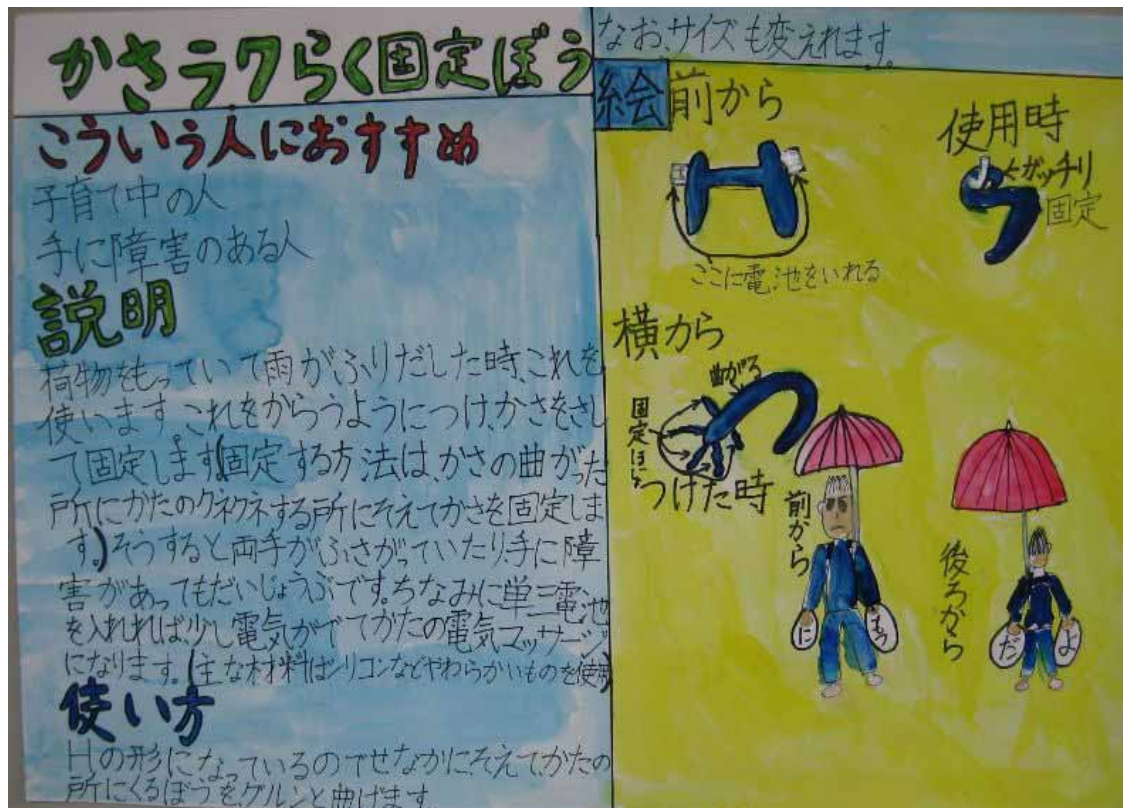 かさラクらく固定ぼう
こういう人におすすめ
子育て中の人
手に障害のある人
説明
荷物をもっていて雨がふりだした時、これを
使います。これをからうようにつけ、かさをさし
て固定します(固定する方法は、かさの曲がた
所にかたのクネクネする所にそえてかさを固定しま
す。)そうすると両手がふさがっていたり手に障
害があってもだいじょうぶです。ちなみに単三電池
を入れれば少し電気がでてかたの電気マッサージ
になります。(主な材料はシリコンなどやわらかいものを使用)
使い方
Hの形になっているのでせなかにそえて、かたの
所にくるぼうを、グルンと曲げます。
なお、サイズも変えれます。
絵
前から
ここに電池をいれる
使用時
ガッチリ
固定
横から
曲がる
固定ぼう
つけた時
前から
に
もつ
後ろから
だ
よ